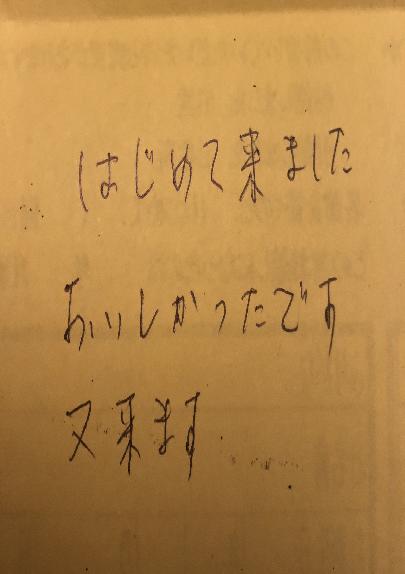 はじめて来ました
おいしかったです
又来ます